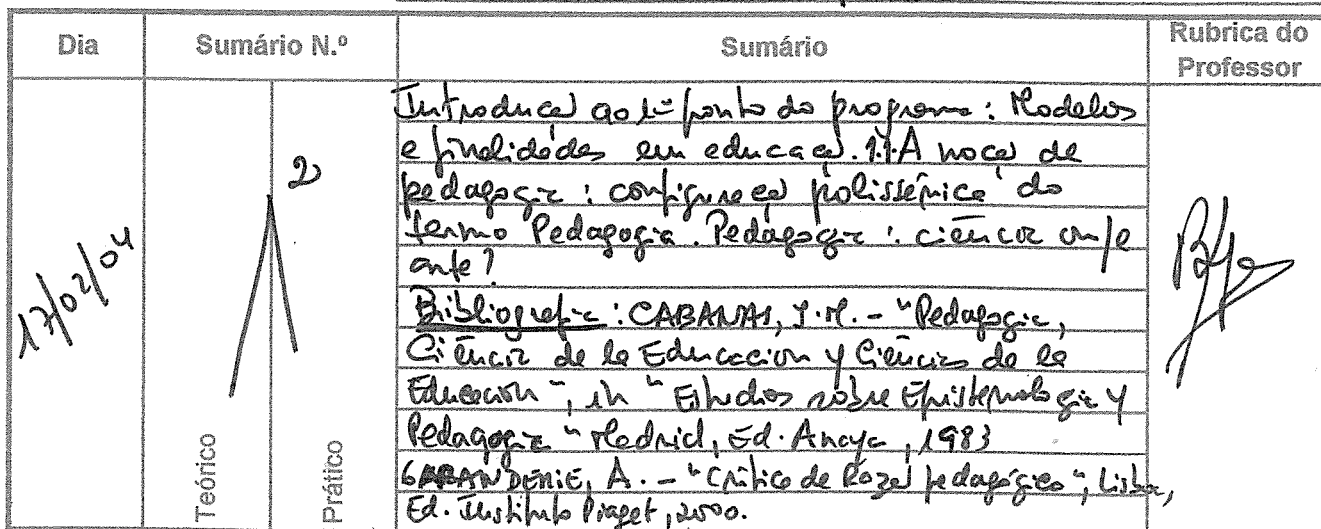 Dia Sumário N.º Sumário Rubrica do Professor
17/02/04
2
Teórico
Prático
Introdução ao 1º ponto do programa: Modelos
e finalidades em educação. 1.1. A noção de
pedagogia: configuração polissémica do
termo Pedagogia. Pedagogia: ciência ou/e
arte?
Bibliografia: CABANAS, J.M. - "Pedagogia,
Ciência de la Educacion y Ciencias de la
Educacion", in "Estudios sobre Epistemologia y
Pedagogia" Madrid, Ed. Anaya, 1983
GARANDERIE, A. - "Crítica de Razão pedagógica", Lisboa,
Ed. Instituto Piaget, 2000.